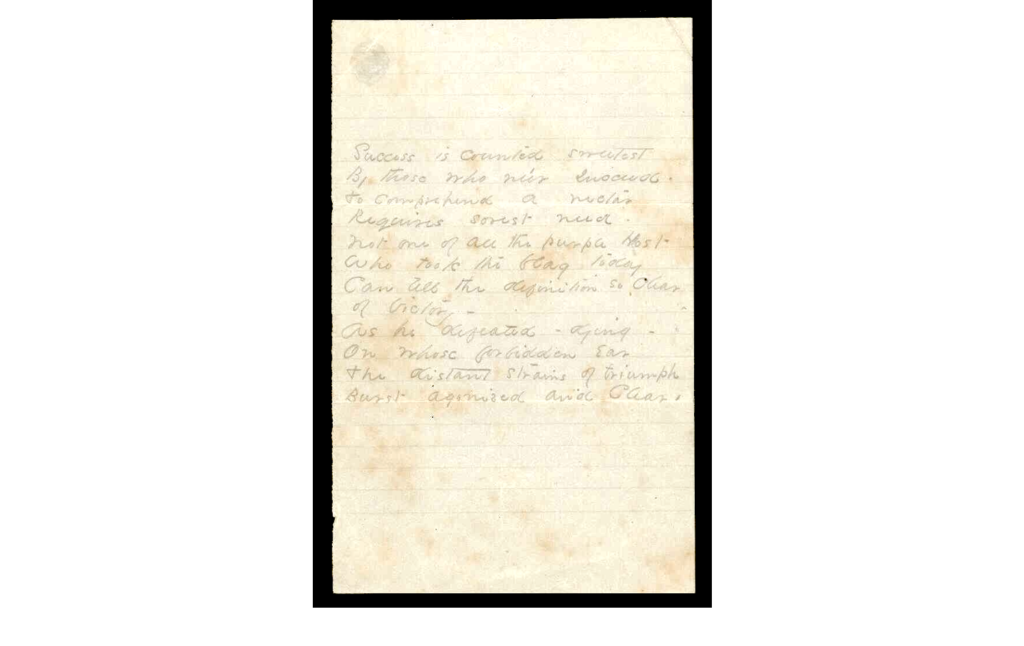 Success is counted sweetest
By those who ne'er succeed.
To comprehend a nectar
Requires sorest need.
Not one of all the purple Host
Who took the flag today
Can tell the definition so Clear
of Victory -
As he defeated - dying -
On whose forbidden Ear
The distant strains of triumph
Burst agonized and Clear.